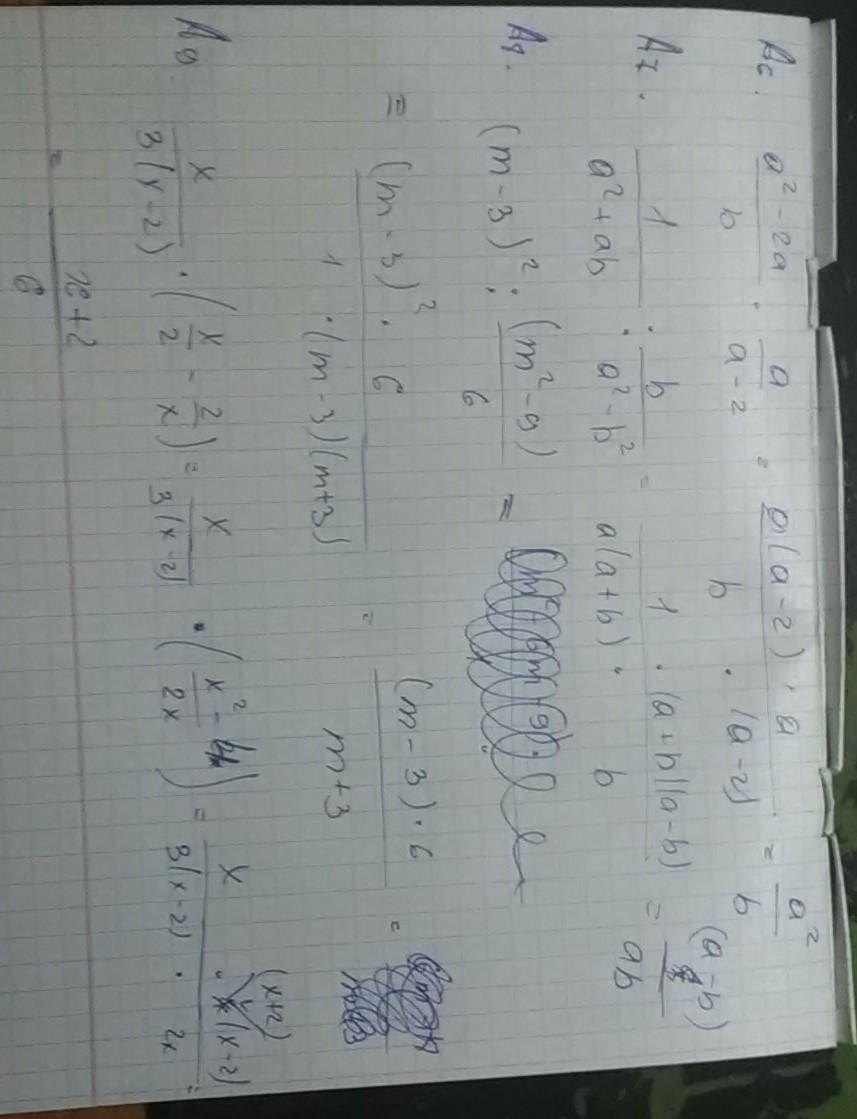 A6. (a² - 2a)/b · a/(a-2) = (a(a-2)·a)/(b·(a-2)) = a²/b
A7. 1/(a²+ab) : b/(a²-b²) = (1·(a+b)(a-b))/(a(a+b)·b) = (a-b)/ab
A8. (m-3)² : (m²-9)/6 =
= ((m-3)²·6)/(1·(m-3)(m+3)) = ((m-3)·6)/(m+3) =
A9. x/(3(x-2)) · (x/2 - 2/x) = x/(3(x-2)) · ((x²-4)/2x) = (x·(x+2)(x-2))/(3(x-2)·2x) =
= (x+2)/6